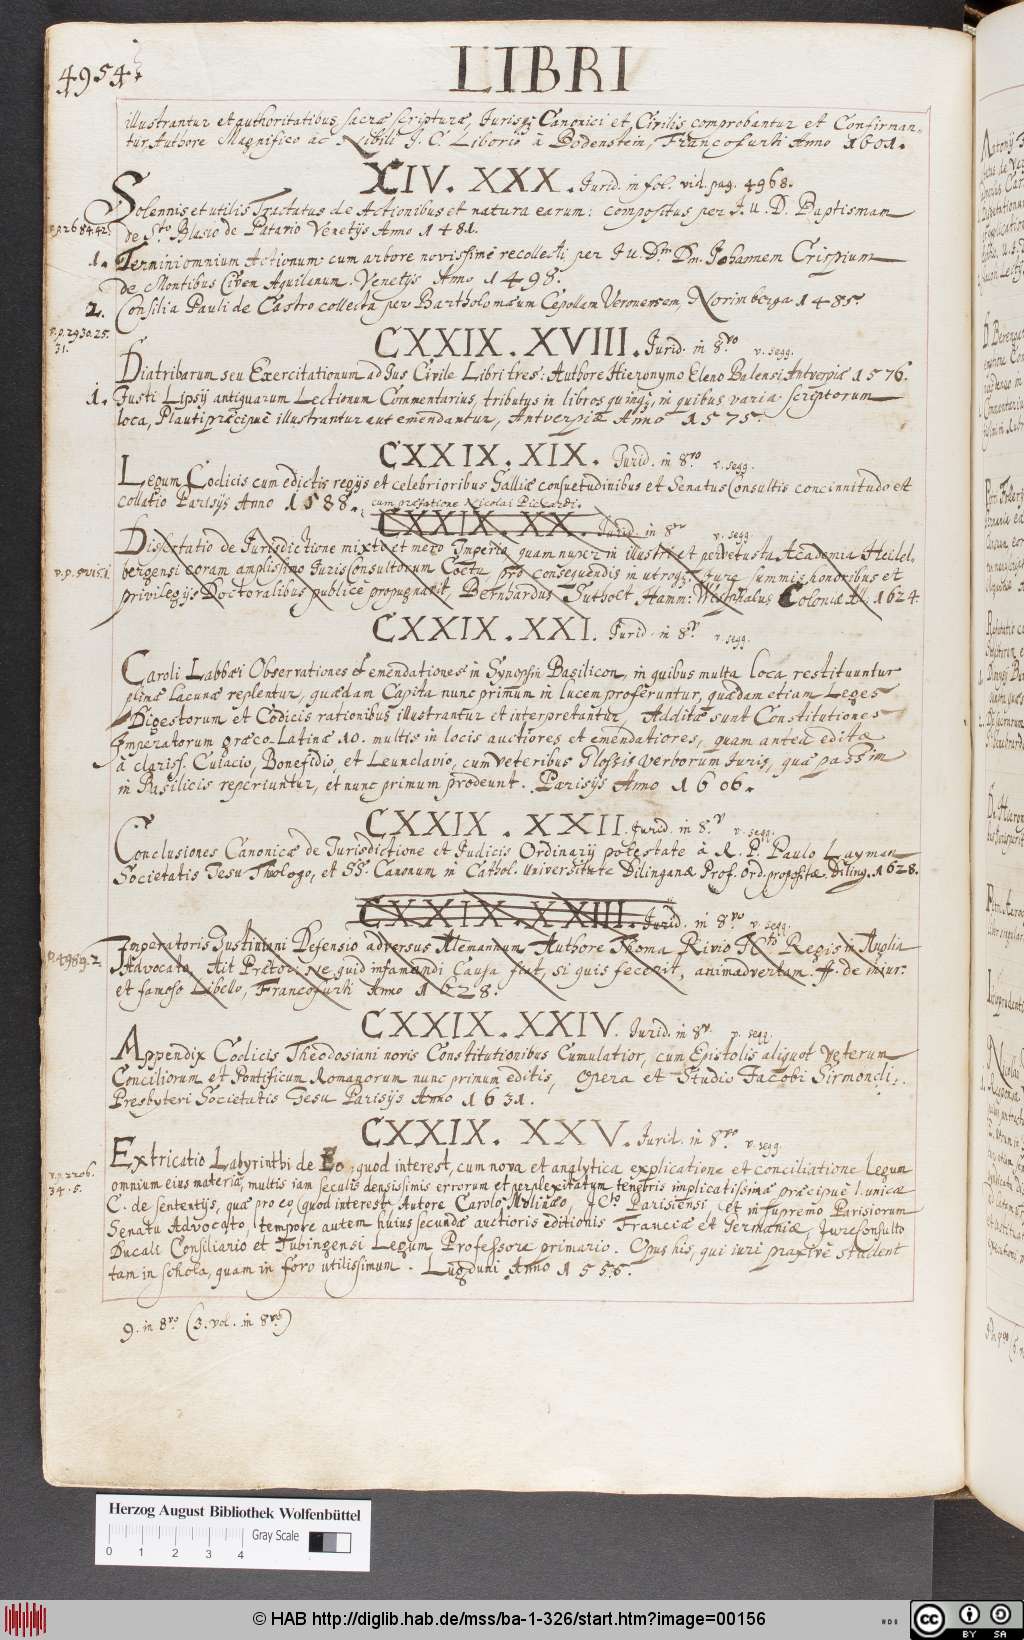 4954
LIBRI
illustrantur et authoritatibus sacræ scripturæ, Jurisq; Canonici et Civilis comprobantur et Confirman-
tur Authore Magnifico ac Nobili J. C. Liborio à Bodenstein, Francofurti Anno 1601.
XIV. XXX. Jurid. in fol. vid. pag. 4968.
Solennis et utilis Tractatus de Actionibus et natura earum: compositus per J. U. D. Baptismam
de Sto Blasio de Patavio Venetijs Anno 1481.
1. Termini omnium Actionum cum arbore novissime recollecti per J U. Dtm Dm. Johannem Crispium
de Montibus Civem Aquilanum. Venetijs Anno 1498.
2. Consilia Pauli de Castro collecta per Bartholomæum Cepollam Veronensem, Norimberga 1485.
v. p. 2930. 25.
31.
CXXIX. XVIII. Jurid. in 8vo v. segg.
Diatribarum seu Exercitationum ad Jus Civile Libri tres: Authore Hieronymo Eleno Balensi Antverpiæ 1576.
1. Justi Lipsij antiquarum Lectionum Commentarius, tributus in libros quinq;, in quibus varia scriptorum
loca, Plauti præcipuè illustrantur aut emendantur, Antverpiæ Anno 1575.
CXXIX. XIX. Jurid. in 8vo v. segg.
Legum Codicis cum edictis regijs et celebrioribus Galliæ consuetudinibus et Senatus Consultis concinnitudo est
collatio Parisijs Anno 1588. cum præfatione Nicolai Piccardi.
CXXIX. XX. Jurid. in 8vo v. segg.
Dissertatio de Jurisdictione mixto et mero Imperio, quam nuper in illustri et pervetusta Academia Heidel-
bergensi coram amplissimo Jurisconsultorum Coetu pro consequendis in utroq; Jure summis honoribus et
privilegijs Doctoralibus publicè propugnavit, Bernhardus Sutholt Hamm: Westphalus Coloniæ A. 1624.
CXXIX. XXI. Jurid. in 8vo v. segg.
Caroli Labbæi Observationes et emendationes in Synopsin Basilicon, in quibus multa loca restituuntur
plinæ Lacunæ replentur, quædam Capita nunc primum in lucem proferuntur, quædam etiam Leges
Digestorum et Codicis rationibus illustrantur et interpretantur, Additæ sunt Constitutiones
Imperatorum græco-Latinæ 10. multis in locis auctiores et emendatiores, quam antea editæ
à clariss. Cuiacio, Bonefidio, et Leunclavio, cum veteribus Glossis verborum Juris, quæ passim
in Basilicis reperiuntur, et nunc primum prodeunt. Parisijs Anno 1606.
CXXIX. XXII. Jurid. in 8v v. segg.
Conclusiones Canonicæ de Jurisdictione et Judicis Ordinarij potestate à R. P. Paulo Layman
Societatis Jesu Theologo, et SS. Canonum in Cathol. Universitate Dilingana Prof. Ord. propositæ Diling. 1628.
CXXIX. XXIII. Jurid. in 8vo v. segg.
p. 4989. 2.
Imperatoris Justiniani Defensio adversus Alemannum Authore Thoma Rivio JCto Regis in Anglia
Advocato, Ait Prætor: Ne quid infamandi Causa fiat, si quis fecerit, animadvertam. ff. de injur:
et famoso Libello, Francofurti Anno 1628.
CXXIX. XXIV. Jurid. in 8vo. v. segg.
Appendix Codicis Theodosiani novis Constitutionibus Cumulatior, cum Epistolis aliquot Veterum
Conciliorum et Pontificum Romanorum nunc primum editis, Opera et Studio Jacobi Sirmondi,
Presbyteri Societatis Jesu Parisijs Anno 1631.
CXXIX. XXV. Jurid. in 8vo v. segg.
v. p. 2206.
34. 5.
Extricatio Labyrinthi de Eo, quod interest, cum nova et analytica explicatione et conciliatione Legum
omnium eius materiæ, multis iam seculis densissimis errorum et perplexitatum tenebris implicatissimæ præcipuè l. unicæ
C. de sententijs, quæ pro eo quod interest, Autore Carolo Molinæo, JCto Parisiensi, et in supremo Parisiorum
Senatu Advocato, tempore autem huius secundæ auctioris editionis Franciæ et Germaniæ, Jureconsulto
Ducali Consiliario et Tubingensi Legum Professore primario. Opus his, qui iuri praxivè student
tam in schola, quam in foro utilissimum. Lugduni Anno 1555.
9. in 8vo (3. vol. in 8vo)
Herzog August Bibliothek Wolfenbüttel
Gray Scale
0 1 2 3 4
© HAB http://diglib.hab.de/mss/ba-1-326/start.htm?image=00156
BY SA